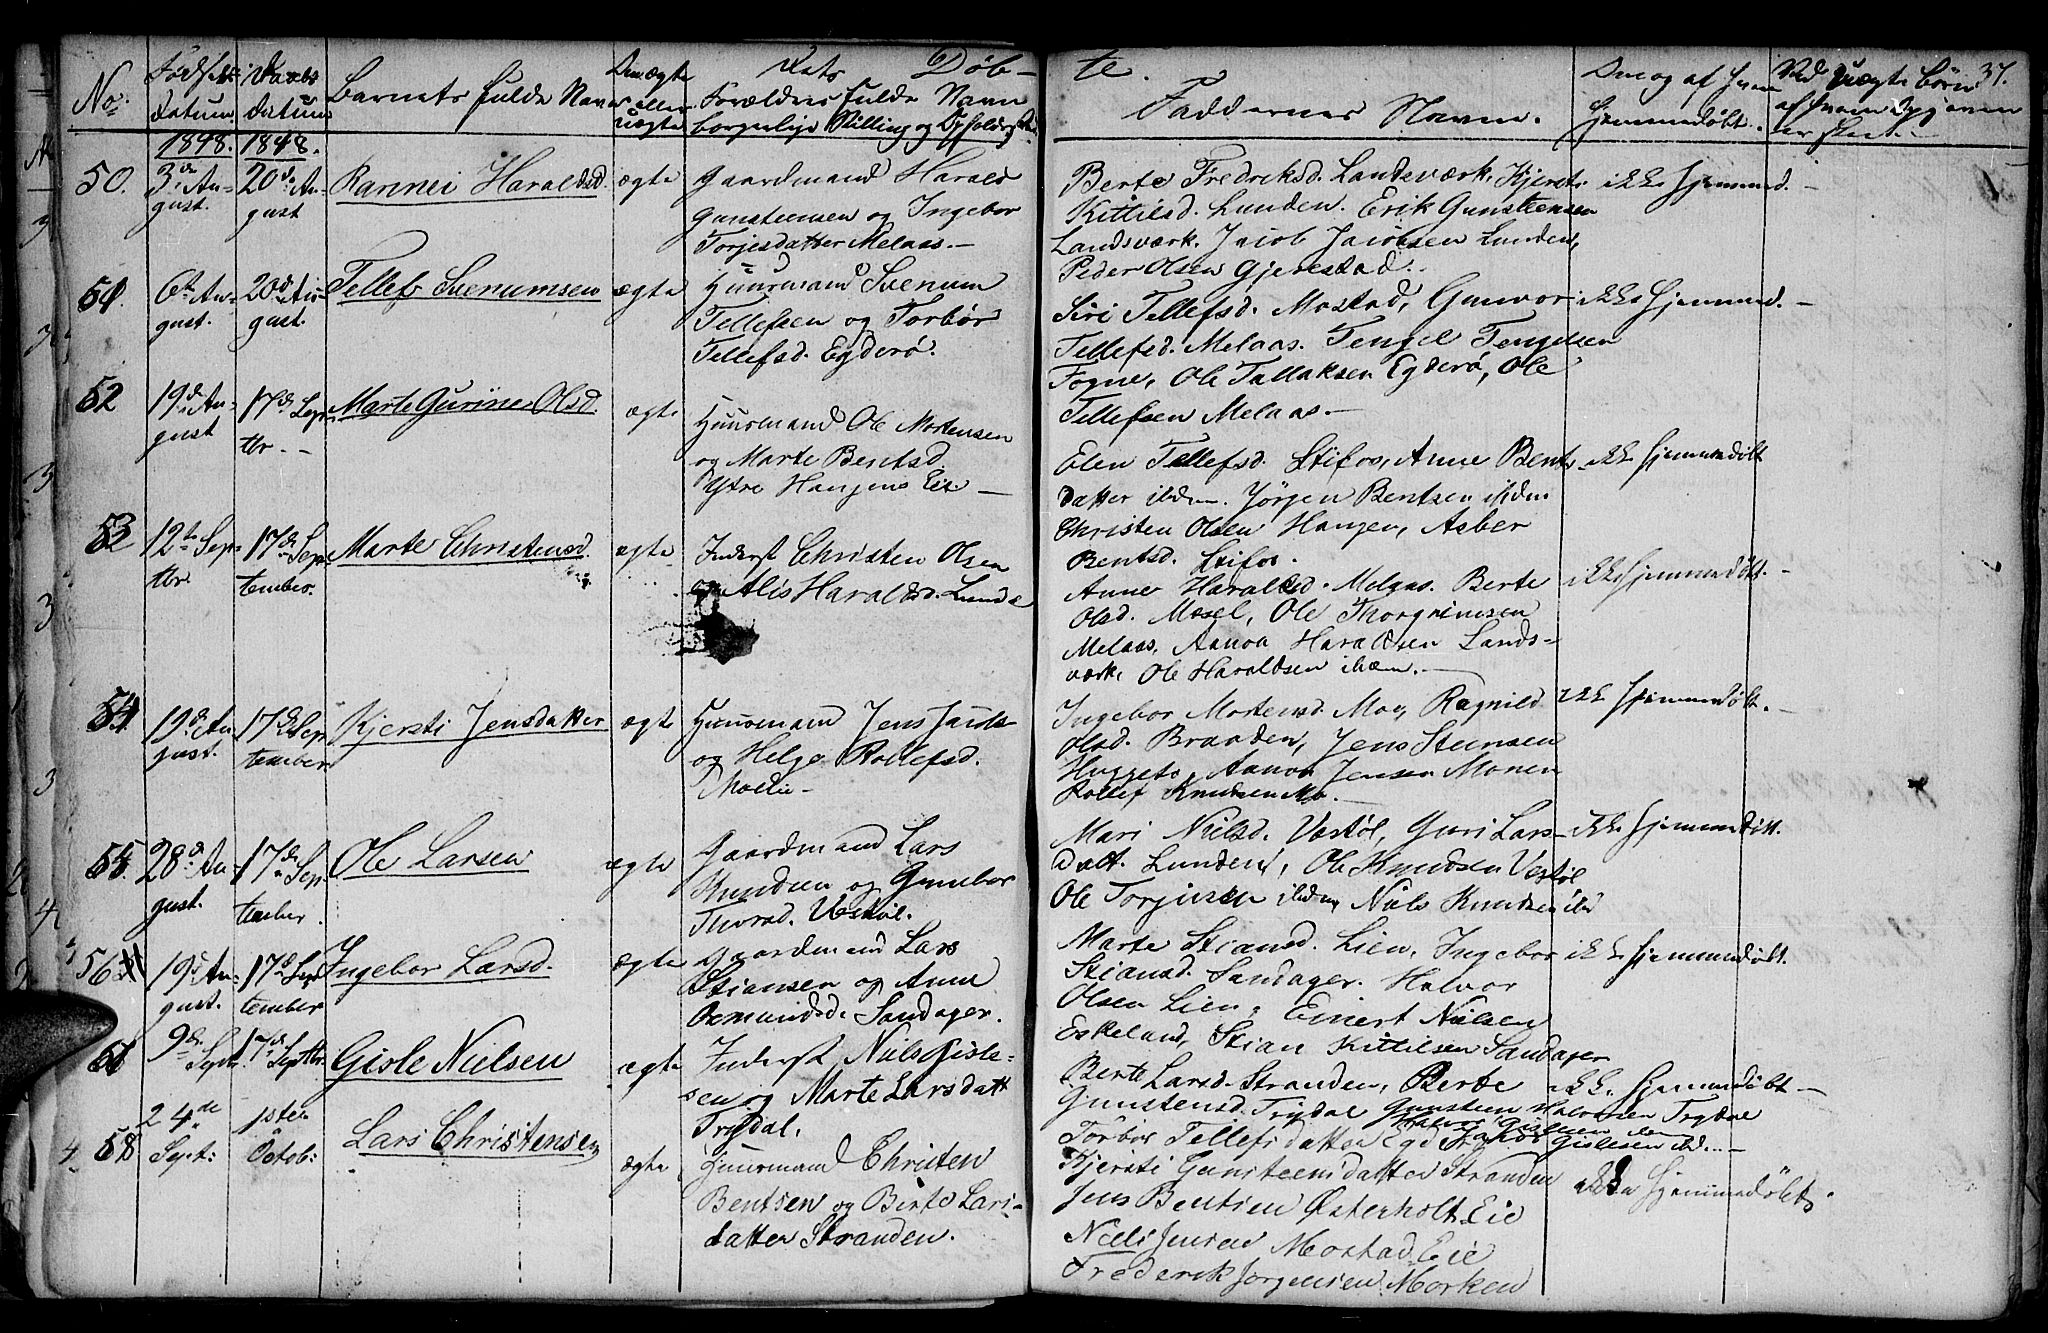 Døb-
te.
37.
No.
Fødsels Datum
Daabs Datum
Barnets fulde Navn
Om ægte eller uægte
Forældres fulde Navn
borgerlige Stilling og Opholdssted
Faddernes Navne.
Om og af hvem
hjemmedøbt.
Ved uægte Børn
af hvem
1848. 1848.
50.
3die August.
20de August
Rannei Haraldsd.
ægte
Gaardmand Harald
Gunsteensen og Ingebor
Torjesdatter Melaas.
Berte Fredriksd. Landsværk, Kjersti
Kittilsd. Lunden. Erik Gunsteensen
Landsværk. Jacob Jacobsen Lunden,
Peder Olsen Gjerestad.
ikke hjemmed.
51.
6te August.
20de August.
Tellef Svenumsen
ægte
Huusmand Svenum
Tellefsen og Torbør
Tellefsd. Egderø.
Siri Tellefsd. Mostad, Gunvor
Tellefsd. Melaas. Tengel Tengelsen
Fogne, Ole Tallaksen Egderø, Ole
Tellefsen Melaas.
ikke hjemmed.
52
19de August
17de Septbr.
Marte Gurine Olsd.
ægte
Huusmand Ole Mortensen
og Marte Bentsd.
Ytre Haugens Eie
Elen Tellefsd. Stifos, Anne Bents
datter ibdm. Jørgen Bentsen ibdm
Christen Olsen Haugen, Asber
Bentsd. Stifos.
ikke hjemmedøbt
53
12te Septbr.
17de September.
Marte Christensd.
ægte
Inderst Christen Olsen
og Alis Haraldsd. Lunde
Anne Haraldsd. Melaas. Berte
Olsd. Mosel, Ole Thorgrimsen
Melaas, Aanon Haraldsen Lands-
værk, Ole Haraldsen ibdm.
ikke hjemmedøbt.
54
19de August.
17de September
Kjersti Jensdatter
ægte
Huusmand Jens
og Helge Rollefsd.
Moeie
Ingebor Mortensd. Moe, Ragnild
Olsd. Braaden, Jens Steensen
Huggeto, Aanon Jensen Monen
Rollef Knudsen Mo.
ikke hjemmedøbt.
55
28de August.
17de September.
Ole Larsen
ægte
Gaardmand Lars
Knudsen og Gunebor
Thorsd. Vestøl.
Mari Nielsd. Vestøl, Guri Lars-
datt. Lunden, Ole Knudsen Vestøl
Ole Torjusen ibdm, Niels Knudsen ibd
ikke hjemmedøbt.
56
19de August.
17de September
Ingebor Larsd.
ægte
Gaardmand Lars
Stiansen og Anne
Osmundsd. Sandager.
Marte Stiansd. Lien, Ingebor
Stiansd. Sandager. Halvor
Olsen Lien, Einert Nielsen
Eskeland, Stian Kittilsen Sandager
ikke hjemmedøbt.
9de Septr.
17de Septbr.
Gisle Nielsen
ægte
Inderst Niels Gisle-
sen og Marte Larsdatt
Trydal.
Berte Larsd. Stranden, Berte
Gunstensd. Trydal Gunsteen Halvorsen Trydal
Halvor Gislesen
Gislesen ibd.
ikke hjemmedøbt
58
24de Sept:
1ste Octob:
Lars Christensen
ægte
Huusmand Christen
Bentsen og Birte Lars-
datter Stranden.
Torbør Tellefsdatter
Kjersti Gunsteensdatter Stranden
Jens Bentsen Østerholt Eie
Niels Jensen Mostad Eie
Frederik Jørgensen Morken
ikke hjemmedøbt.